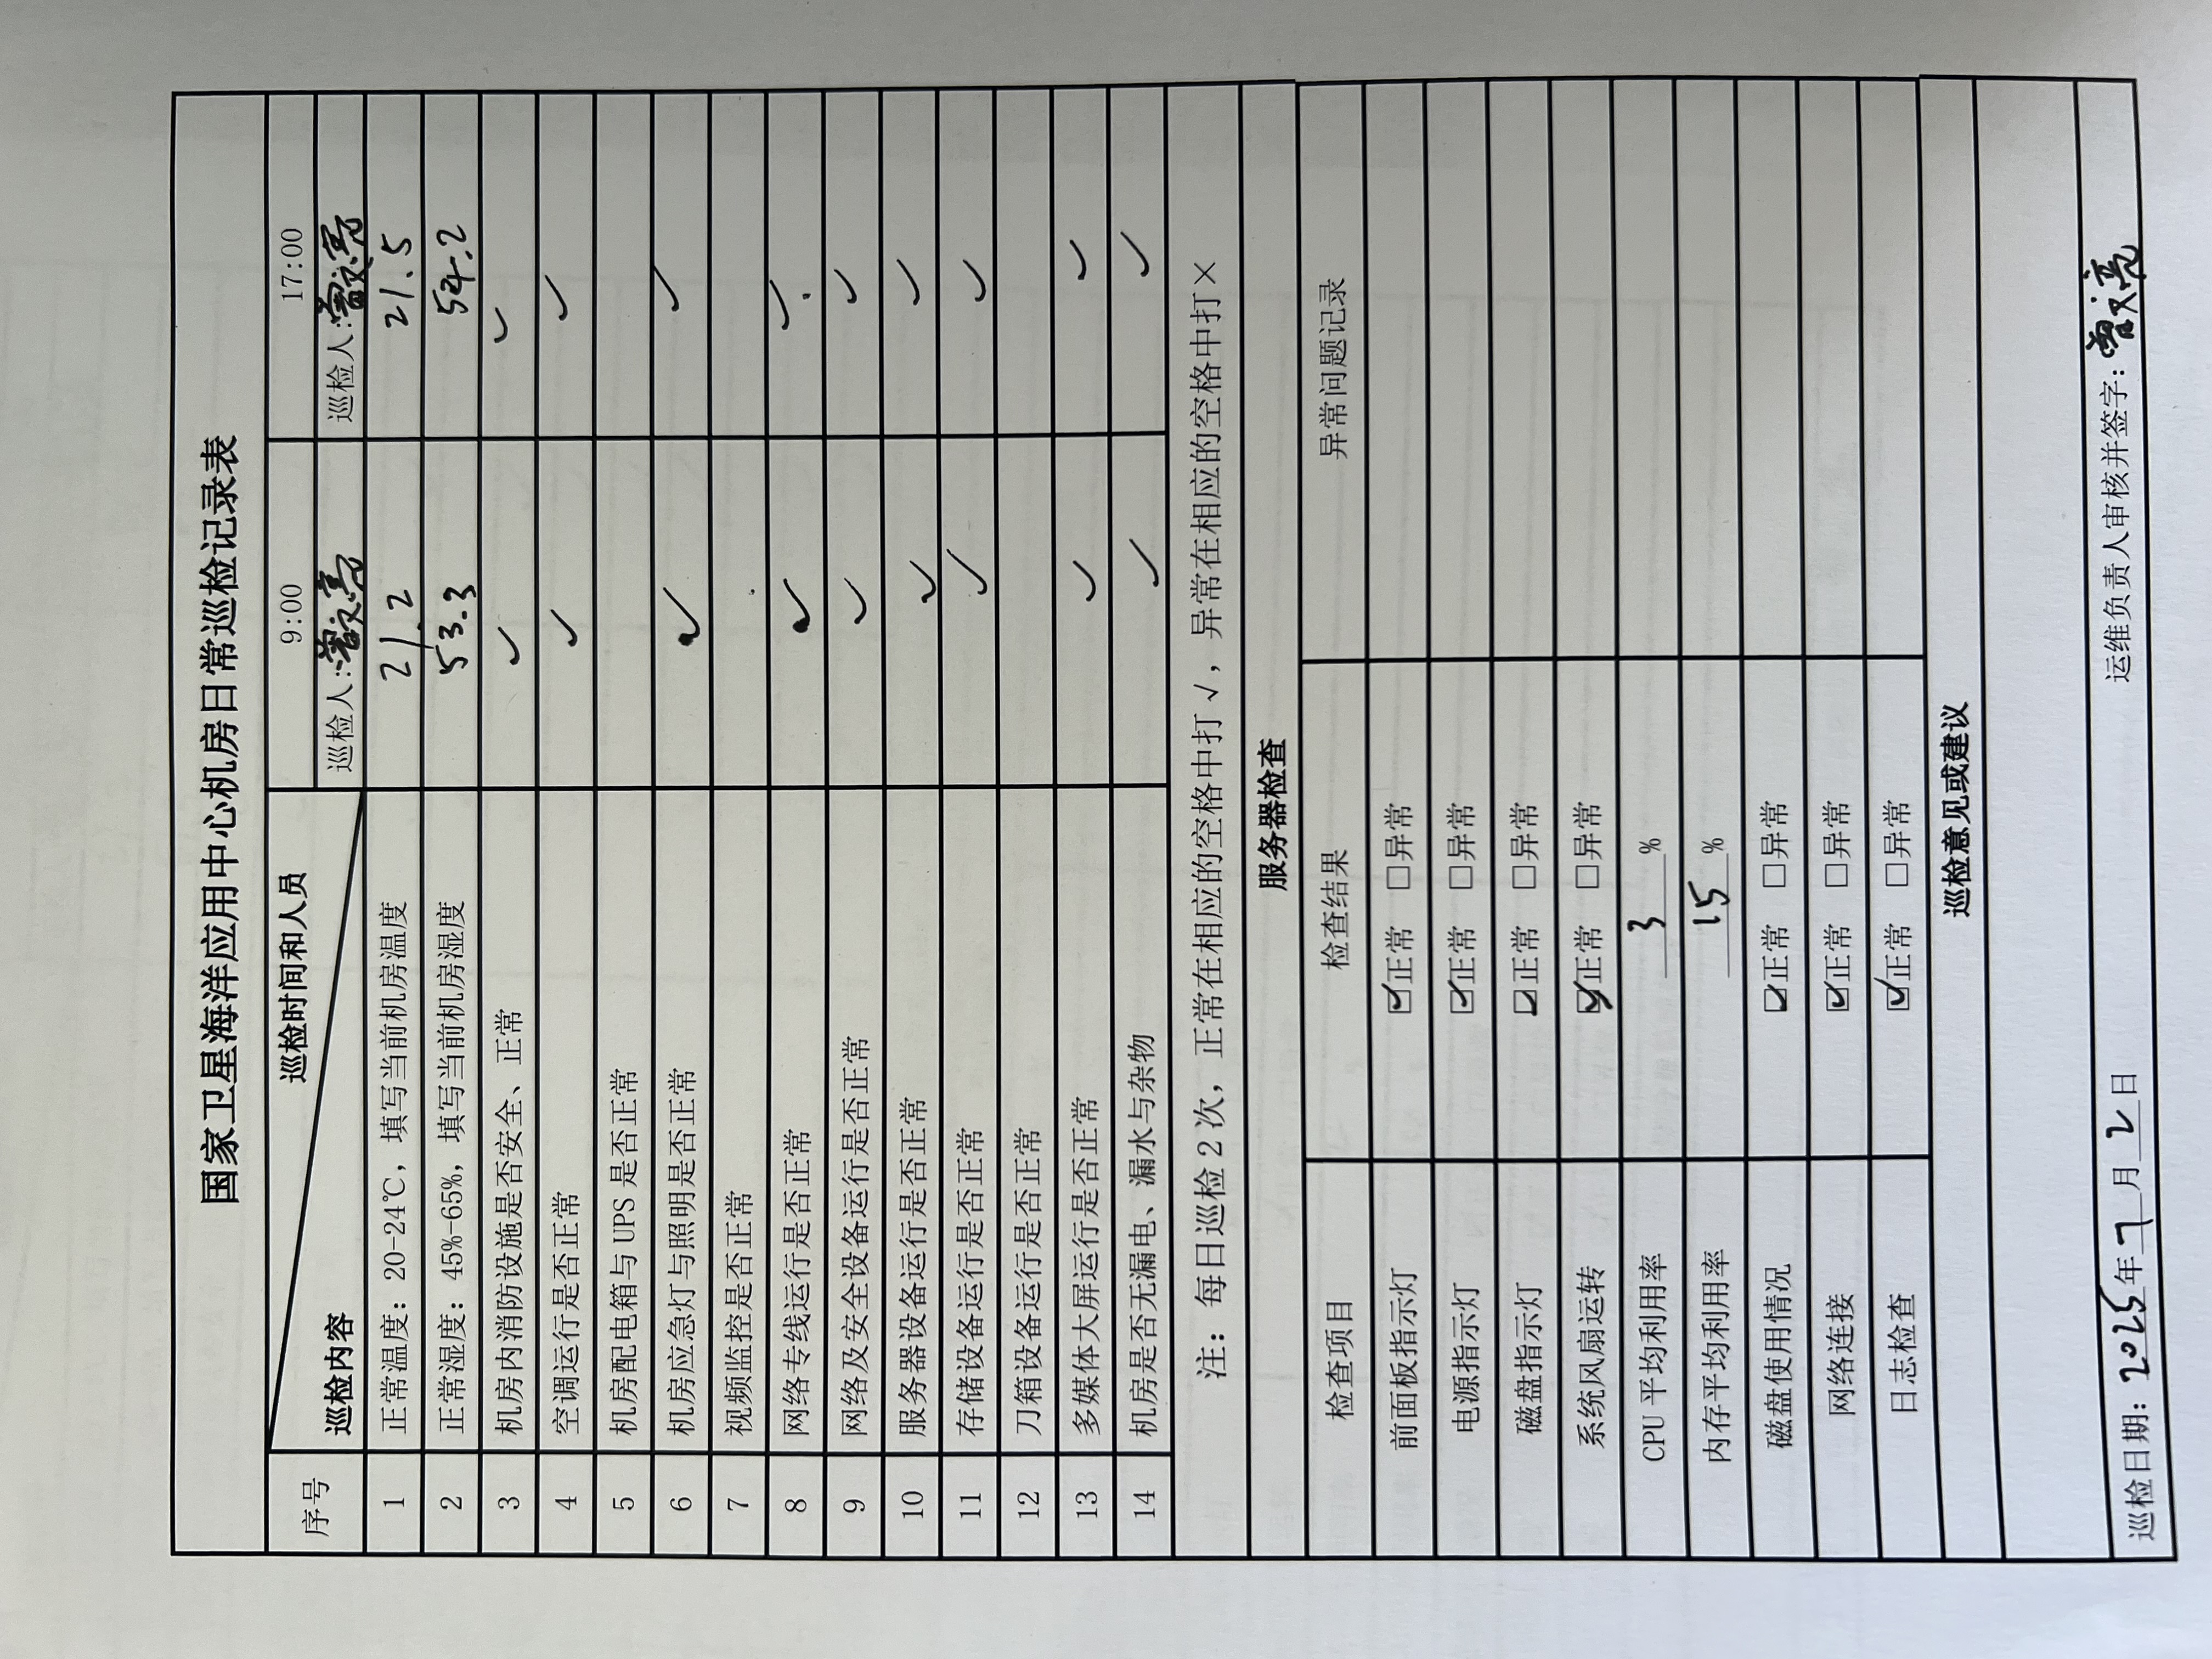 国家卫星海洋应用中心机房日常巡检记录表
序号 巡检时间和人员 巡检内容 9:00 17:00
巡检人: 曾文亮 巡检人: 曾文亮
1 正常温度：20-24℃，填写当前机房温度 21.2 21.5
2 正常湿度：45%-65%，填写当前机房湿度 53.3 54.2
3 机房内消防设施是否安全、正常 ✓ ✓
4 空调运行是否正常 ✓ ✓
5 机房配电箱与 UPS 是否正常
6 机房应急灯与照明是否正常 ✓ ✓
7 视频监控是否正常
8 网络专线运行是否正常 ✓ ✓
9 网络及安全设备运行是否正常 ✓ ✓
10 服务器设备运行是否正常 ✓ ✓
11 存储设备运行是否正常 ✓ ✓
12 刀箱设备运行是否正常
13 多媒体大屏运行是否正常 ✓ ✓
14 机房是否无漏电、漏水与杂物 ✓ ✓
注：每日巡检 2 次，正常在相应的空格中打 √，异常在相应的空格中打×
服务器检查
检查项目 检查结果 异常问题记录
前面板指示灯 ☑正常 □异常
电源指示灯 ☑正常 □异常
磁盘指示灯 ☑正常 □异常
系统风扇运转 ☑正常 □异常
CPU 平均利用率 3 %
内存平均利用率 15 %
磁盘使用情况 ☑正常 □异常
网络连接 ☑正常 □异常
日志检查 ☑正常 □异常
巡检意见或建议
巡检日期：2025年7月2日 运维负责人审核并签字：曾文亮